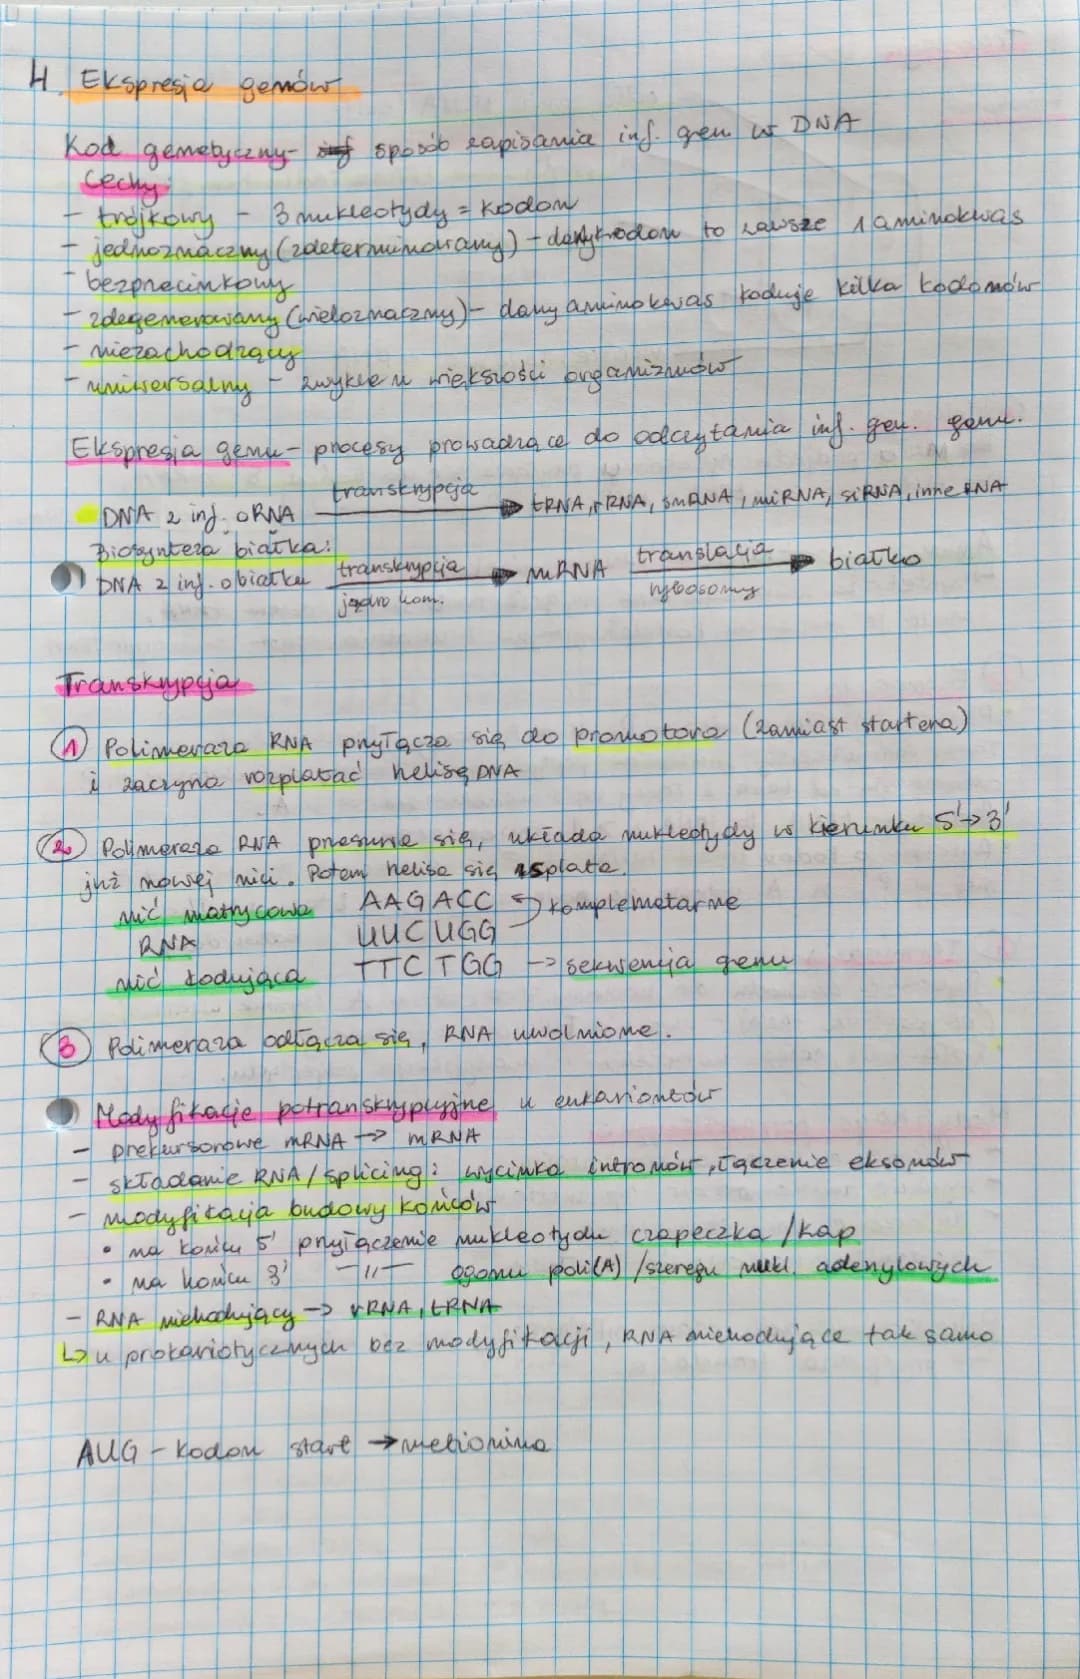 4. Ekspresja genów
Kod genetyczny - sposób zapisania inf. gen w DNA
Cechy:
- trójkowy - 3 nukleotydy = kodon
- jednoznaczny (zdeterminowany) - dany kodon to zawsze 1 aminokwas
- bezprzecinkowy
- zdegenerowany (wieloznaczny) - dany aminokwas koduje kilka kodonów
- niezachodzący
- uniwersalny - zwykle u większości organizmów
Ekspresja genu - procesy prowadzące do odczytania inf. gen. genu.
transkrypcja
DNA z inf. o RNA → tRNA, rRNA, snRNA, miRNA, siRNA, inne RNA
Biosynteza białka:
DNA z inf. o białku transkrypcja → mRNA translacja → białko
jądro kom. rybosomy
Transkrypcja
1 Polimeraza RNA przyłącza się do promotora (zamiast startera)
i zaczyna rozplatać helisę DNA
2 Polimeraza RNA przesuwa się, układa nukleotydy w kierunku 5'→3'
już nowej nici. Potem helisa się splata.
nić matrycowa AAGACC komplemetarne
RNA UUCUGG
nić kodująca TTCTGG → sekwencja genu
3 Polimeraza odłącza się, RNA uwolnione.
Modyfikacje potranskrypcyjne u eukariontów
- prekursorowe mRNA → mRNA
- składanie RNA/splicing: wycinka intronów, łączenie eksonów
- modyfikacja budowy końców
• na końcu 5' przyłączenie nukleotydu czapeczka/kap
• na końcu 3' -||- ogonu poli(A) /szeregu nukl. adenylowych
- RNA niekodujący → rRNA, tRNA
↳ u prokariotycznych bez modyfikacji, RNA niekodujące tak samo
AUG - kodon start → metionina